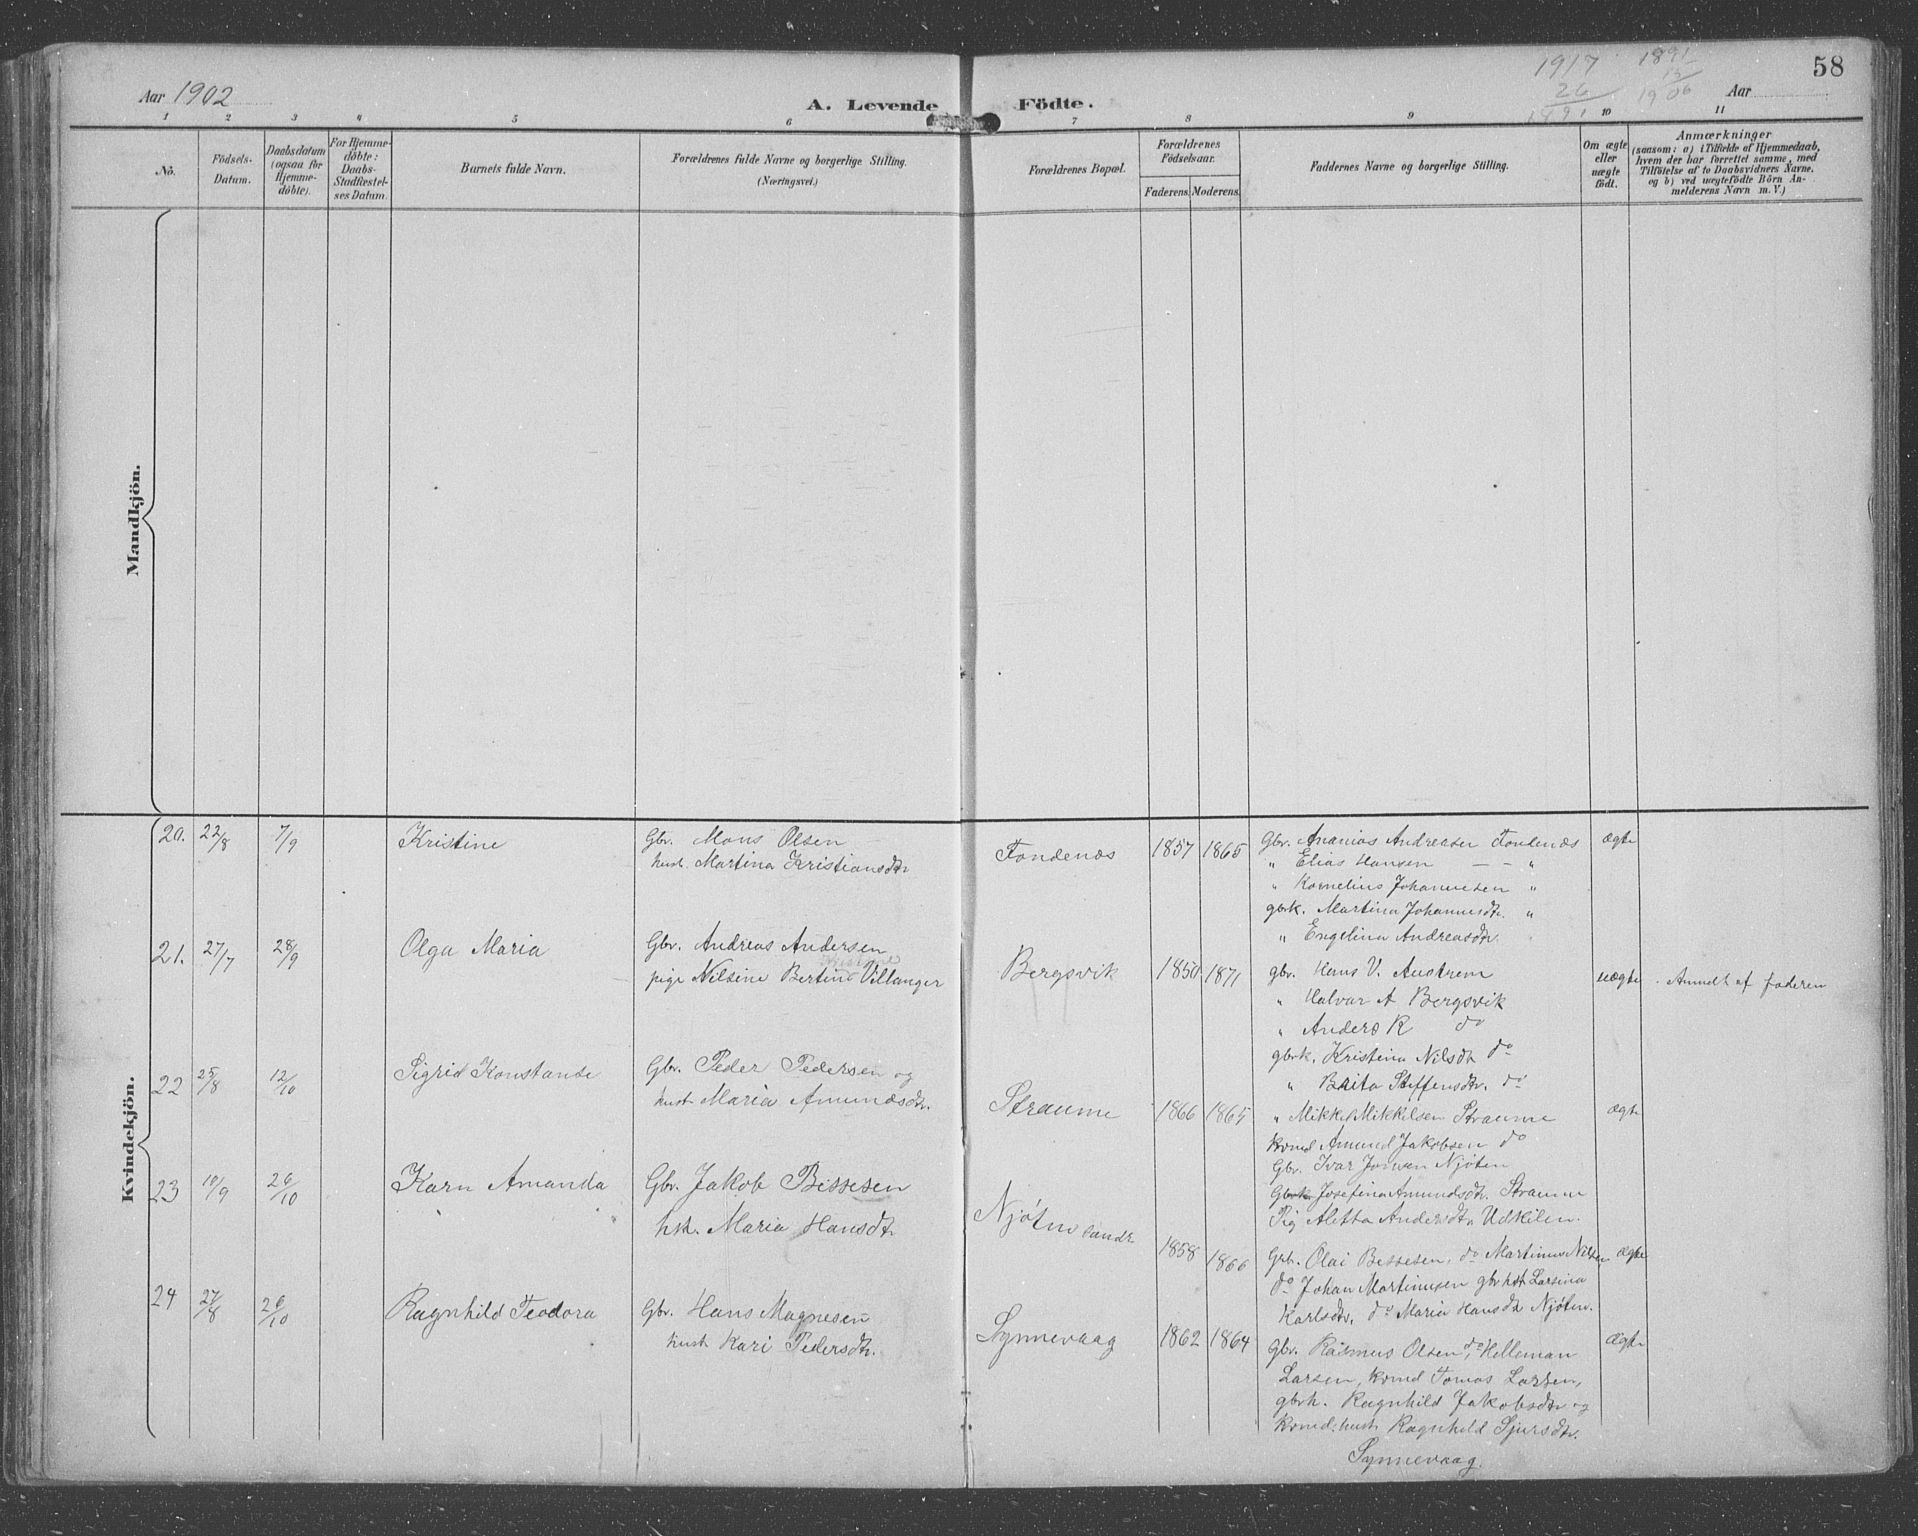 Aar 1902
A. Levende Födte.
1917
26
1891
1891
15
1906
Aar
58
1 2 3 4 5 6 7 8 9 10 11
No.
Födsels-Datum.
Daabsdatum (ogsaa for Hjemme-döbte).
For Hjemme-döbte: Daabs-Stadfæstel-ses Datum.
Barnets fulde Navn.
Forældrenes fulde Navne og borgerlige Stilling.
(Næringsvei.)
Forældrenes Bopæl.
Forældrenes Födselsaar.
Faderens. Moderens.
Faddernes Navne og borgerlige Stilling.
Om ægte eller uægte födt.
Anmærkninger
(saasom: a) i Tilfælde af Hjemmedaab,
hvem der har forrettet samme, med
Tilföielse af to Daabsvidners Navne.
og b) ved uægtefödte Börn An-
melderens Navn m. V.)
Mandkjön.
Kvindekjön.
20. 22/8 7/9 Kristine
Gbr. Mons Olsen
hust. Martina Kristiansdtr
Fondenæs 1857 1865
Gbr. Ananias Andreasen Fondenæs
" Elias Hansen — — "
" Kornelius Johannesen "
gbrk. Martina Johannesdtr. "
" Engelina Andreasdtr.
ægte
21. 27/7 28/9 Olga Maria
Gbr. Andreas Andersen
pige Nilsine Bertine Villanger
Bergsvik 1850 1871
gbr. Hans V. Austrem
" Halvar A Bergsvik
" Anders K do
gbrk. Kristina Nilsdtr do
" Brita Steffensdtr. do
uægte
Anmdt af faderen
22 25/8 12/10 Sigrid Konstanse
Gbr. Peder Pedersen og
hust Maria Amundsdtr.
Straume 1866 1865
" Mikkel Mikkelsen Straume
kvmd Amund Jakobsen do
Gbr. Ivar Jonsen Njöten
Gbrk Josefina Amundsdtr. Straume
Pig Aletta Andersdtr Udkilen.
ægte
23 10/9 26/10 Karn Amanda
Gbr. Jakob Bessesen
hsk. Maria Hansdtr.
Njöten søndr 1858 1866
Grb. Olai Bessesen, do Martinus Nilsen
do Johan Martinusen gbrhst Larsina
Karlsdtr, do Maria Hansdtr Njöten.
ægte
24 27/8 26/10 Ragnhild Teodora
Gbr. Hans Magnesen
hust Kari Pedersdtr.
Synnevaag 1862 1864
Gbr. Rasmus Olsen, do Helleman
Larsen, kvmd Tomas Larsen,
gbrh. Ragnhild Jakobsdtr og
kvmd. hust Ragnhild Sjursdtr.
Synnevaag.
ægte